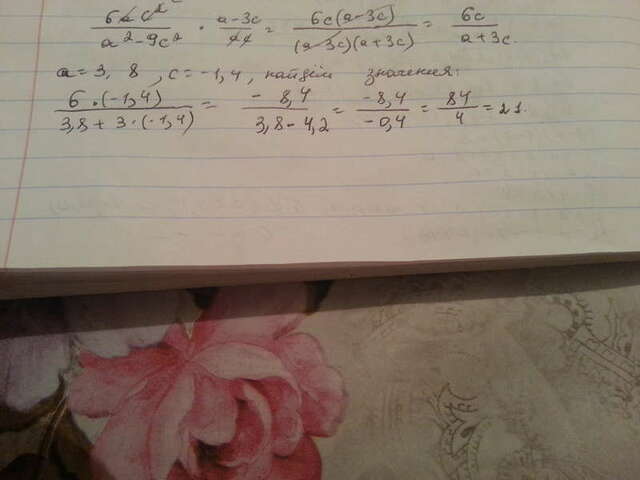 6ac²/(a²-9c²) · (a-3c)/(ac) = 6c(a-3c)/((a-3c)(a+3c)) = 6c/(a+3c).
a=3,8, c=-1,4, найдём значения:
6·(-1,4)/(3,8+3·(-1,4)) = -8,4/(3,8-4,2) = -8,4/-0,4 = 84/4 = 21.